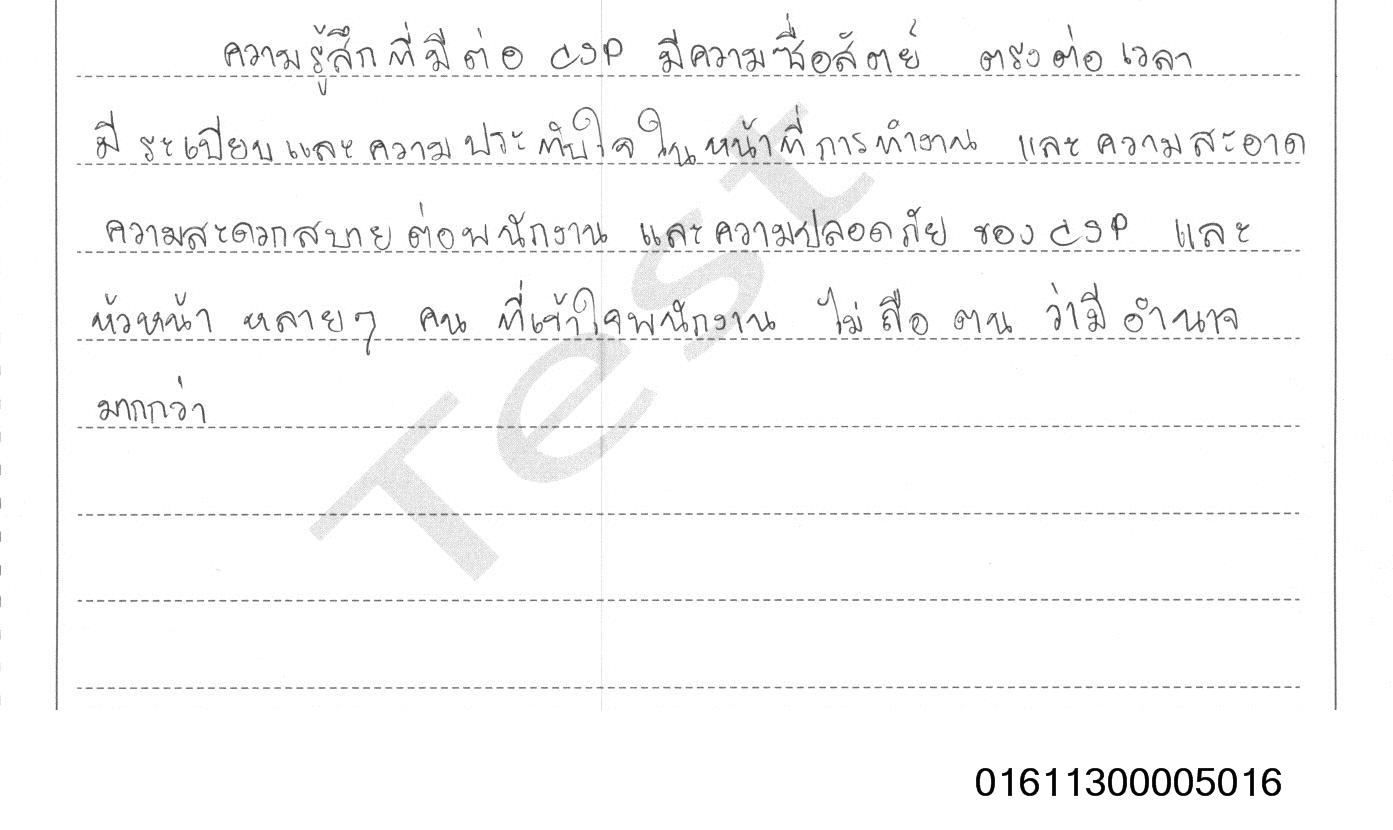 ความรู้สึกที่มีต่อ CSP มีความซื่อสัตย์ ตรงต่อเวลา
มีระเบียบและความประทับใจในหน้าที่การทำงาน และความสะอาด
ความสะดวกสบายต่อพนักงาน และความปลอดภัยของ CSP และ
หัวหน้า หลายๆ คน ที่เข้าใจพนักงาน ไม่ถือตน ว่ามีอำนาจ
มากกว่า
Test
01611300005016